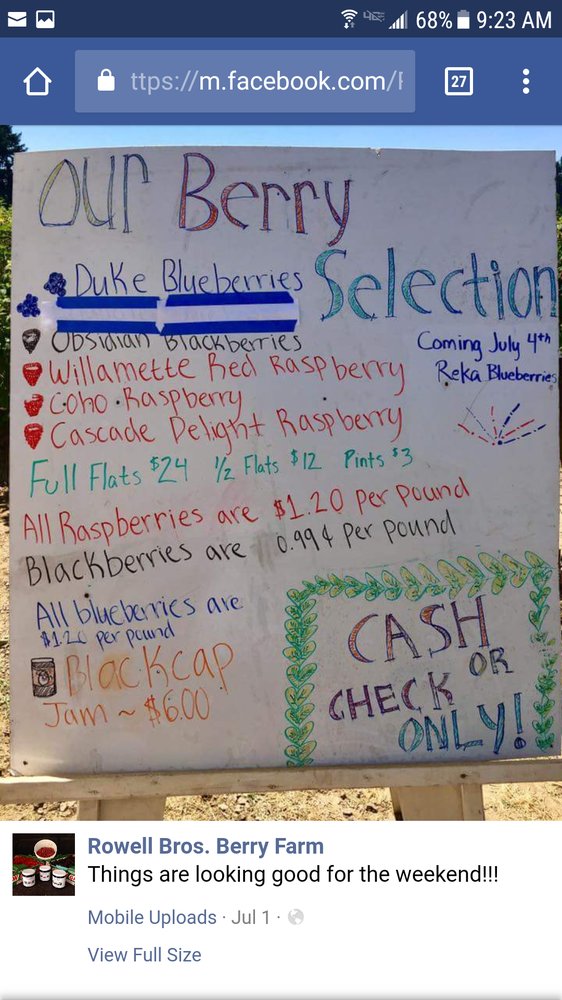 68% 9:23 AM
ttps://m.facebook.com/
27
Our Berry
Selection
Duke Blueberries
Obsidian Blackberries
Willamette Red Raspberry
Coho Raspberry
Cascade Delight Raspberry
Coming July 4th
Reka Blueberries
Full Flats $24 1/2 Flats $12 Pints $3
All Raspberries are $1.20 Per Pound
Blackberries are 0.99¢ Per Pound
All blueberries are
$1.20 per pound
Blackcap
Jam ~ $6.00
CASH
OR
CHECK
ONLY!
Rowell Bros. Berry Farm
Things are looking good for the weekend!!!
Mobile Uploads · Jul 1 ·
View Full Size